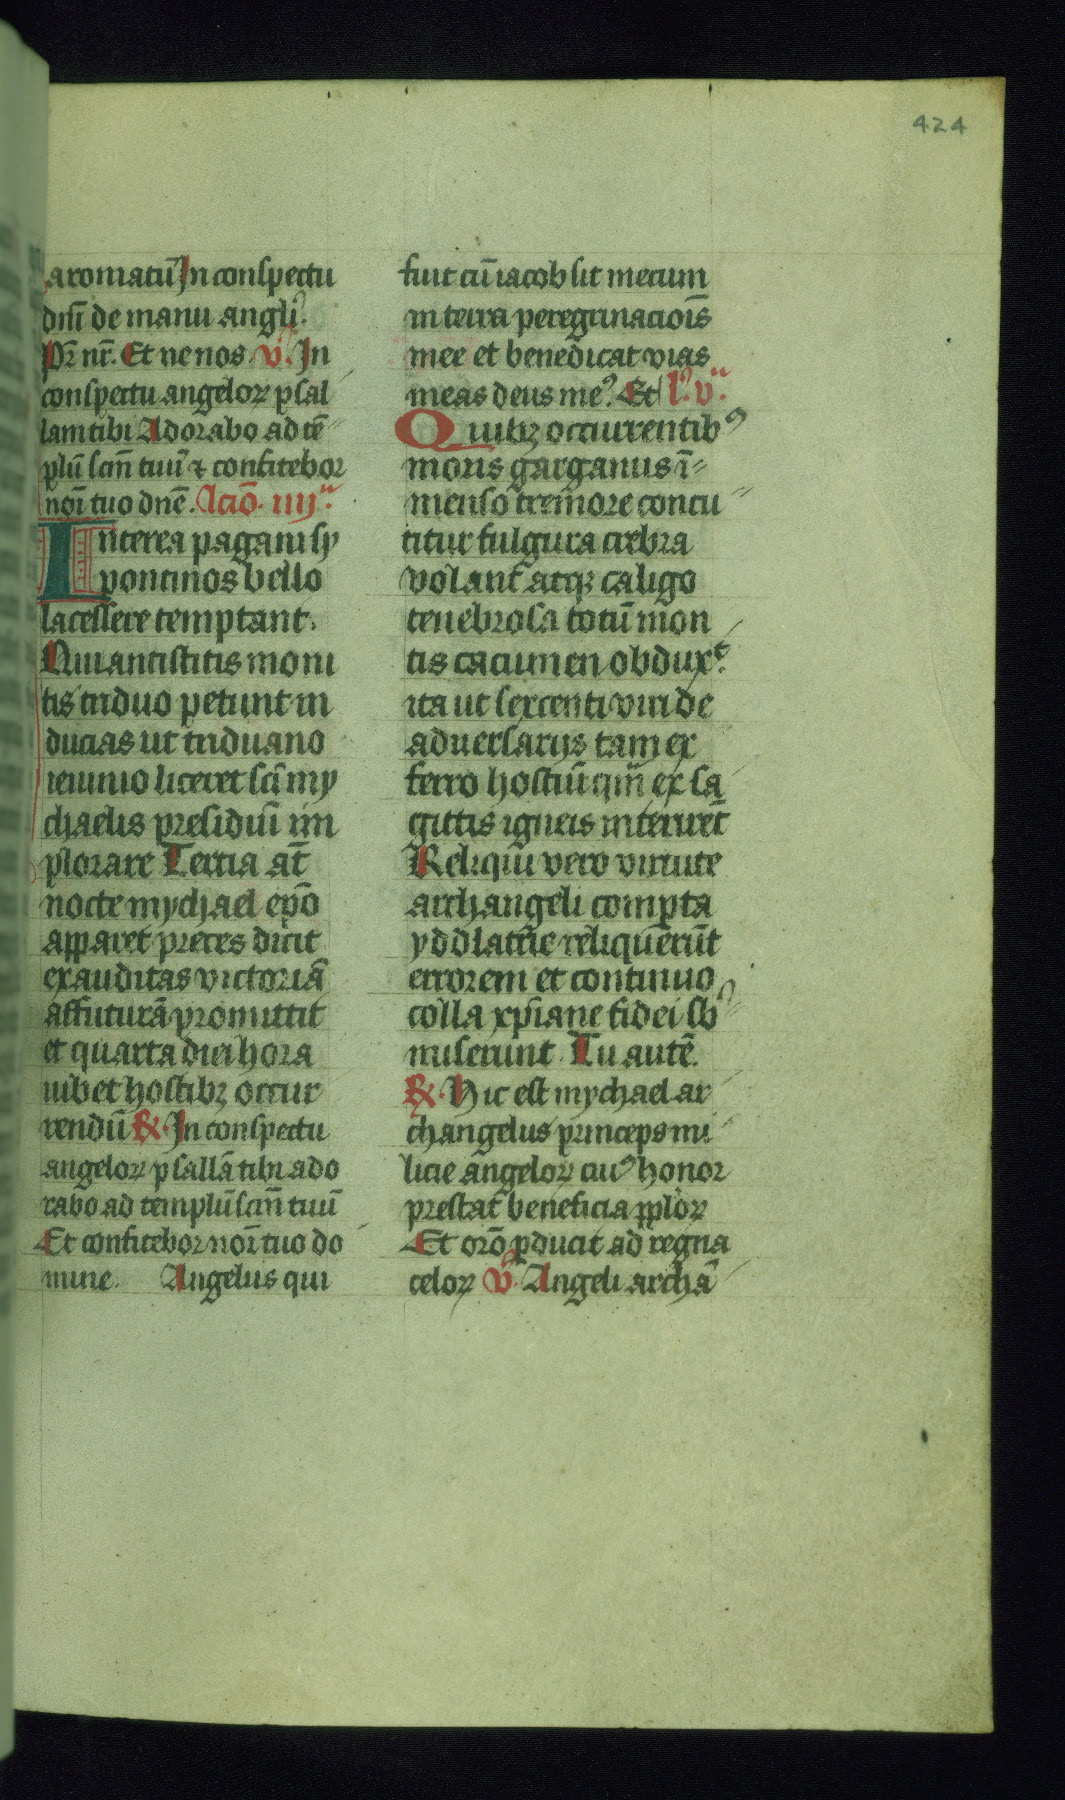 424
aromatū In conspectu
dn̄i de manu angli᾽.
Pr̄ nr̄. Et ne nos. v᾽. In
conspectu angeloꝝ psal
lam tibi Adorabo ad tē
plū scm̄ tuū ⁊ confitebor
noī tuo dnē. Lc̄io. iiijᵃ.
Interea pagani sy
pontinos bello
lacessere temptant.
Qui antistitis moni
tis triduo petunt in
ducias ut triduano
ieiunio liceret sc̄i my
chaelis presidiū im
plorare Tertia at̄
nocte mychael ep̄o
apparet preces dicit
exauditas victoriā
affuturā promittit
et quarta diei hora
iubet hostibꝫ occur
rendū R᾽. In conspectu
angeloꝝ psallā tibi ado
rabo ad templū scm̄ tuū
Et confitebor noī tuo do
mine. Angelus qui
fuit cū iacob sit mecum
in terra peregrinacioīs
mee et benedicat vias
meas deus me᾽. Et l᾽. vᵃ.
Quibꝫ occurentibꝰ
moris garganus ī
menso tremore concu
titur fulgura crebra
volant̄ atqꝫ caligo
tenebrosa totū mon
tis cacumen obduxᵗ
ita ut sexcenti viri de
adversarijs tam ex
ferro hostiū qm̄ ex sa
gittis igneis interirēt
Reliqui vero virtute
archangeli comperta
ydolatrie reliquerūt
errorem et continuo
colla xp̄iane fidei sb᾽
miserunt. Tu autē.
R᾽. Hic est mychael ar
changelus princeps mi
licie angeloꝝ cuiꝰ honor
prestat̄ beneficia pplōꝝ
Et orō ꝑducit ad regna
celoꝝ v᾽. Angeli archā